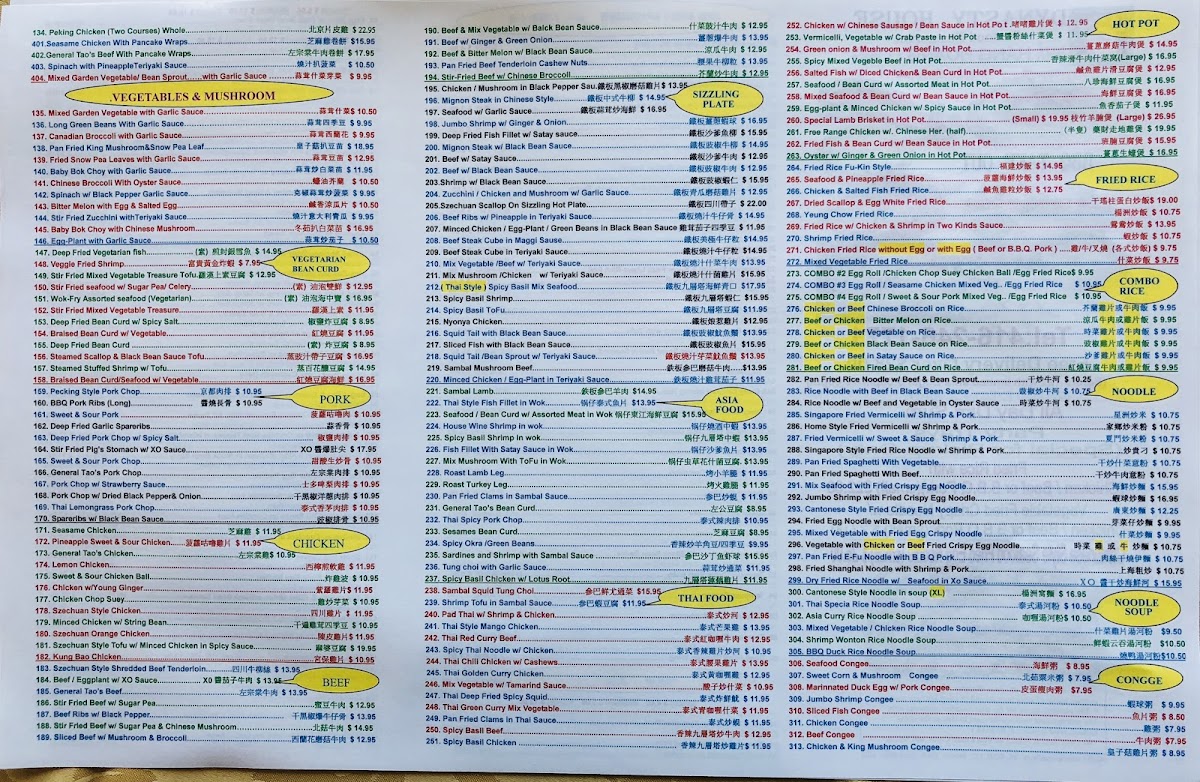 134. Peking Chicken (Two Courses) Whole 北京片皮雞 $ 22.95
401.Seasame Chicken With Pancake Wraps 芝麻雞卷餅 $15.95
402.General Tao's Beef With Pancake Wraps 左宗棠牛肉卷餅 $ 17.95
403. Spinach with PineappleTeriyaki Sauce 燒汁扒菠菜 $ 10.50
404. Mixed Garden Vegetable/ Bean Sprout with Garlic Sauce 蒜茸什菜芽菜 $ 9.95
VEGETABLES & MUSHROOM
135. Mixed Garden Vegetable with Garlic Sauce 蒜茸什菜$ 10.50
136. Long Green Beans With Garlic Sauce 蒜茸四季豆 $ 9.95
137. Canadian Broccoli with Garlic Sauce 蒜茸西蘭花 $ 9.95
138. Pan Fried King Mushroom&Snow Pea Leaf 皇子菇扒豆苗 $ 18.95
139. Fried Snow Pea Leaves with Garlic Sauce 蒜茸豆苗 $ 12.95
140. Baby Bok Choy with Garlic Sauce 蒜茸炒白菜苗 $ 11.95
141. Chinese Broccoli With Oyster Sauce 蠔油芥蘭 $ 10.50
142. Spinach w/ Black Pepper Garlic Sauce 蒜茸炒菠菜 $ 9.95
143. Bitter Melon with Egg & Salted Egg 鹹香涼瓜片 $ 10.50
144. Stir Fried Zucchini withTeriyaki Sauce 燒汁意大利青瓜 $ 9.95
145. Baby Bok Choy with Chinese Mushroom 冬菇扒白菜苗 $ 16.95
146. Egg-Plant with Garlic Sauce 蒜茸炒茄子 $ 10.50
147. Deep Fried Vegetarian fish (素) 煎封銀雪魚 $ 14.95
VEGETARIAN BEAN CURD
148. Veggie Fried Shrimp 富貴黃金炸蝦 $ 7.95
149. Stir Fried Mixed Vegetable Treasure Tofu 羅漢上素豆腐 $ 12.95
150. Stir Fried seafood w/ Sugar Pea/ Celery (素) 油泡雙鮮 $ 12.95
151. Wok-Fry Assorted seafood (Vegetarian) (素) 油泡海中寶 $ 16.95
152. Stir Fried Mixed Vegetable Treasure 羅漢上素 $ 11.95
153. Deep Fried Bean Curd w/ Spicy Salt 椒鹽炸豆腐 $ 8.95
154. Braised Bean Curd w/ Vegetable 紅燒豆腐 $ 11.95
155. Deep Fried Bean Curd (素) 炸豆腐 $ 9.95
156. Steamed Scallop & Black Bean Sauce Tofu 蒸豉汁帶子豆腐 $ 16.95
157. Steamed Stuffed Shrimp w/ Tofu 蒸百花釀豆腐 $ 14.95
158. Braised Bean Curd/Seafood w/ Vegetable 紅燒豆腐海鮮 $ 16.95
159. Pecking Style Pork Chop 京都肉排 $ 10.95
PORK
160. BBQ Pork Ribs (Long) 醬燒長骨 $ 10.95
161. Sweet & Sour Pork 菠蘿咕嚕肉 $ 10.95
162. Deep Fried Garlic Spareribs 蒜香骨 $ 10.95
163. Deep Fried Pork Chop w/ Spicy Salt 椒鹽肉排 $ 10.95
164. Stir Fried Pig's Stomach w/ XO Sauce XO 醬爆肚尖 $ 17.95
165. Sweet & Sour Pork Chop 甜酸生炒骨 $ 10.95
166. General Tao's Pork Chop 左宗棠肉排 $ 10.95
167. Pork Chop w/ Strawberry Sauce 士多啤梨肉排 $ 10.95
168. Pork Chop w/ Dried Black Pepper& Onion 干黑椒洋蔥肉排 $ 10.95
169. Thai Lemongrass Pork Chop 泰式香茅肉排 $ 10.95
170. Spareribs w/ Black Bean Sauce 豉椒排骨 $ 10.95
171. Seasame Chicken 芝麻雞 $ 11.95
CHICKEN
172. Pineapple Sweet & Sour Chicken 菠蘿咕嚕雞片 $ 11.95
173. General Tao's Chicken 左宗棠雞$ 10.95
174. Lemon Chicken 西檸煎軟雞 $ 11.95
175. Sweet & Sour Chicken Ball 炸雞波 $ 10.95
176. Chicken w/Young Ginger 紫蘿雞片$ 11.95
177. Chicken Chop Suey 雞炒芽菜 $ 10.95
178. Szechuan Style Chicken 四川雞片 $ 11.95
179. Minched Chicken w/ String Bean 干遍雞茸四季豆 $ 10.95
180. Szechuan Orange Chicken 陳皮雞片$ 11.95
181. Szechuan Style Tofu w/ Minced Chicken in Spicy Sauce 麻婆豆腐 $ 10.95
182. Kung Bao Chicken 宮保雞片 $ 10.95
183. Szechuan Style Shredded Beef Tenderloin 四川牛柳絲 $ 13.95
BEEF
184. Beef / Eggplant w/ XO Sauce XO 醬茄子牛肉 $ 13.95
185. General Tao's Beef 左宗棠牛肉 $ 13.95
186. Stir Fried Beef w/ Sugar Pea 蜜豆牛肉 $ 12.95
187. Beef Ribs w/ Black Pepper 干黑椒爆牛仔骨 $ 13.95
188. Stir Fried Beef w/ Sugar Pea & Chinese Mushroom 北菇牛肉 $ 14.95
189. Sliced Beef w/ Mushroom & Broccoli 西蘭花蘑菇牛肉 $ 12.95
190. Beef & Mix Vegetable w/ Balck Bean Sauce 什菜豉汁牛肉 $ 12.95
191. Beef w/ Ginger & Green Onion 薑蔥爆牛肉 $ 13.95
192. Beef & Bitter Melon w/ Black Bean Sauce 涼瓜牛肉 $ 12.95
193. Pan Fried Beef Tenderloin Cashew Nuts 腰果牛柳粒 $ 13.95
194. Stir-Fried Beef w/ Chinese Broccoli 芥蘭炒牛肉 $ 12.95
195. Chicken / Mushroom in Black Pepper Sau. 鐵板黑椒磨菇雞片$ 13.95
SIZZLING PLATE
196. Mignon Steak in Chinese Style 鐵板中式牛柳 $ 14.95
197. Seafood w/ Garlic Sauce 鐵板蒜茸炒海鮮 $ 16.95
198. Jumbo Shrimp w/ Ginger & Onion 鐵板薑蔥蝦球 $ 16.95
199. Deep Fried Fish Fillet w/ Satay sauce 鐵板沙爹魚柳 $ 13.95
200. Mignon Steak w/ Black Bean Sauce 鐵板豉椒牛柳 $ 14.95
201. Beef w/ Satay Sauce 鐵板沙爹牛肉 $ 12.95
202. Beef w/ Black Bean Sauce 鐵板豉椒牛肉 $ 12.95
203.Shrimp w/ Black Bean Sauce 鐵板豉椒蝦仁 $ 15.95
204. Zucchini / Chicken and Mushroom w/ Garlic Sauce 鐵板青瓜磨菇雞片 $ 12.95
205.Szechuan Scallop On Sizzling Hot Plate 鐵板四川帶子 $ 22.00
206. Beef Ribs w/ Pineapple in Teriyaki Sauce 鐵板燒汁牛仔骨 $ 14.95
207. Minced Chicken / Egg-Plant / Green Beans in Black Bean Sauce 雞茸茄子四季豆 $ 11.95
208. Beef Steak Cube in Maggi Sause 鐵板美極牛仔粒 $ 14.95
209. Beef Steak Cube in Teriyaki Sauce 鐵板燒汁牛仔粒 $ 14.95
210. Mix Vegetable /Beef w/ Teriyaki Sauce 鐵板燒汁什菜牛肉 $ 13.95
211. Mix Mushroom /Chicken w/ Teriyaki Sauce 鐵板燒汁什菌雞片 $ 15.95
212.( Thai Style ) Spicy Basil Mix Seafood 九層塔海鮮青口 $ 17.95
213. Spicy Basil Shrimp 鐵板九層塔蝦仁 $ 15.95
214. Spicy Basil ToFu 鐵板九層塔豆腐 $ 11.95
215. Nyonya Chicken 鐵板娘惹雞片 $12.95
216. Squid Tail with Black Bean Sauce 鐵板豉椒魷魚鬚 $13.95
217. Sliced Fish with Black Bean Sauce 鐵板豉椒魚片 $13.95
218. Squid Tail /Bean Sprout w/ Teriyaki Sauce 鐵板燒汁芽菜魷魚鬚 $13.95
219. Sambal Mushroom Beef 鐵板參巴磨菇牛肉 $13.95
220. Minced Chicken / Egg-Plant in Teriyaki Sauce 鐵板燒汁雞茸茄子 $11.95
221. Sambal Lamb 鐵板參巴羊肉 $14.95
ASIA FOOD
222. Thai Style Fish Fillet in Wok 锅仔泰式魚片 $13.95
223. Seafood / Bean Curd w/ Assorted Meat in Wok 锅仔東江海鮮豆腐 $15.95
224. House Wine Shrimp in wok 锅仔燒酒中蝦 $13.95
225. Spicy Basil Shrimp in wok 锅仔九層塔中蝦 $13.95
226. Fish Fillet With Satay Sauce in Wok 锅仔沙爹魚片 $13.95
227. Mix Mushroom With ToFu in Wok 锅仔虫草花什菌豆腐 $13.95
228. Roast Lamb Leg 烤小羊腿 $ 11.95
229. Roast Turkey Leg 烤火雞腿 $ 11.95
230. Pan Fried Clams in Sambal Sauce 參巴炒蜆 $ 11.95
231. General Tao's Bean Curd 左公豆腐 $8.95
232. Thai Spicy Pork Chop 泰式辣肉排 $10.95
233. Sesames Bean Curd 芝麻豆腐 $ 8.95
234. Spicy Okra /Green Beans 香辣炒羊角豆/四季豆 $9.95
235. Sardines and Shrimp with Sambal Sauce 參巴沙丁魚虾球 $15.95
236. Tung choi with Garlic Sauce 蒜茸炒通菜 $11.95
237. Spicy Basil Chicken w/ Lotus Root 九層塔蓮藕雞片 $11.95
238. Sambal Squid Tung Choi 參巴鮮尤通菜 $15.95
THAI FOOD
239. Shrimp Tofu in Sambal Sauce 參巴蝦豆腐 $11.95
240. Pad Thai w/ Shrimp & Chicken 泰式炒河 $ 12.95
241. Thai Style Mango Chicken 泰式芒果雞 $ 13.95
242. Thai Red Curry Beef 泰式紅咖喱牛肉 $ 12.95
243. Spicy Thai Noodle w/ Chicken 泰式香辣雞片炒河 $ 10.95
244. Thai Chili Chicken w/ Cashews 泰式腰菜雞片 $ 13.95
245. Thai Golden Curry Chicken 泰式黃咖喱雞 $ 12.95
246. Mix Vegetable w/ Tamarind Sauce 酸子炒什菜 $ 10.95
247. Thai Deep Fried Spicy Squid 泰式炸鮮魷 $ 11.95
248. Thai Green Curry Mix Vegetable 泰式青咖喱什菜 $ 11.95
249. Pan Fried Clams in Thai Sauce 泰式炒蜆 $ 11.95
250. Spicy Basil Beef 香辣九層塔炒牛肉 $ 12.95
251. Spicy Basil Chicken 香辣九層塔炒雞片$ 11.95
HOT POT
252. Chicken w/ Chinese Sausage / Bean Sauce in Hot Po t 啫啫雞片煲 $ 12.95
253. Vermicelli, Vegetable w/ Crab Paste in Hot Pot 蟹醬粉絲什菜煲 $ 11.95
254. Green onion & Mushroom w/ Beef in Hot Pot 薑蔥蘑菇牛肉煲 $ 14.95
255. Spicy Mixed Vegeble Beef in Hot Pot 香辣滑牛肉什菜窩(Large) $ 16.95
256. Salted Fish w/ Diced Chicken& Bean Curd in Hot Pot 鹹魚雞片滑豆腐煲 $ 12.95
257. Seafood / Bean Curd w/ Assorted Meat in Hot Pot 八珍海鮮豆腐煲 $ 16.95
258. Mixed Seafood & Bean Curd w/ Bean Sauce in Hot Pot 海鮮豆腐煲 $ 16.95
259. Egg-plant & Minced Chicken w/ Spicy Sauce in Hot Pot 魚香茄子煲 $ 11.95
260. Special Lamb Brisket in Hot Pot (Small) $ 19.95 枝竹羊腩煲 (Large) $ 26.95
261. Free Range Chicken w/. Chinese Her. (half) (半隻) 藥財走地雞 $ 19.95
262. Fried Fish & Bean Curd w/ Bean Sauce in Hot Pot 斑腩豆腐煲 $ 15.95
263. Oyster w/ Ginger & Green Onion in Hot Pot 薑蔥生蠔煲 $ 16.95
264. Fried Rice Fu-Kin Style 福建炒飯 $ 14.95
FRIED RICE
265. Seafood & Pineapple Fried Rice 菠蘿海鮮炒飯 $ 13.95
266. Chicken & Salted Fish Fried Rice 鹹魚雞粒炒飯 $ 12.75
267. Dried Scallop & Egg White Fried Rice 干瑤柱蛋白炒飯$ 19.00
268. Yeung Chow Fried Rice 楊洲炒飯 $ 10.75
269. Fried Rice w/ Chicken & Shrimp in Two Kinds Sauce 鴛鴦炒飯 $ 13.95
270. Shrimp Fried Rice 蝦炒飯 $ 10.75
271. Chicken Fried Rice without Egg or with Egg ( Beef or B.B.Q. Pork ) 雞/牛/叉燒 (各式炒飯) $ 9.75
272. Mixed Vegetable Fried Rice 什菜炒飯 $ 9.75
273. COMBO #2 Egg Roll /Chicken Chop Suey Chicken Ball /Egg Fried Rice$ 9.95
COMBO RICE
274. COMBO #3 Egg Roll / Seasame Chicken Mixed Veg.. /Egg Fried Rice $ 10.95
275. COMBO #4 Egg Roll / Sweet & Sour Pork Mixed Veg.. /Egg Fried Rice $ 10.95
276. Chicken or Beef Chinese Broccoli on Rice 芥蘭雞片或牛肉飯 $ 9.95
277. Beef or Chicken Bitter Melon on Rice 涼瓜牛肉或雞片飯 $ 9.95
278. Chicken or Beef Vegetable on Rice 時菜雞片或牛肉飯 $ 9.95
279. Beef or Chicken Black Bean Sauce on Rice 豉椒雞片或牛肉飯 $ 9.95
280. Chicken or Beef in Satay Sauce on Rice 沙爹雞片或牛肉飯 $ 9.95
281. Beef or Chicken Fired Bean Curd on Rice 紅燒豆腐牛肉或雞片飯 $ 9.95
282. Pan Fried Rice Noodle w/ Beef & Bean Sprout 干炒牛仔 $ 10.25
NOODLE
283. Rice Noodle with Beef in Black Bean Sauce 豉椒炒牛河 $ 10.75
284. Rice Noodle w/ Beef and Vegetable in Oyster Sauce 時菜炒牛河 $ 10.75
285. Singapore Fried Vermicelli w/ Shrimp & Pork 星洲炒米 $ 10.75
286. Home Style Fried Vermicelli w/ Shrimp & Pork 家鄉炒米粉 $ 10.75
287. Fried Vermicelli w/ Sweet & Sauce Shrimp & Pork 夏門炒米粉 $ 10.75
288. Singapore Style Rice Noodle w/ Shrimp & Pork 炒貴刁 $ 10.75
289. Pan Fried Spaghetti With Vegetable 干炒什菜意粉 $ 10.75
290. Pan Fried Spaghetti With Beef 干炒牛肉意粉 $ 10.75
291. Mix Seafood with Fried Crispy Egg Noodle 海鮮炒麵 $ 15.95
292. Jumbo Shrimp with Fried Crispy Egg Noodle 蝦球炒麵 $ 16.95
293. Cantonese Style Fried Crispy Egg Noodle 廣東炒麵 $ 12.25
294. Fried Egg Noodle with Bean Sprout 芽菜仔炒麵 $ 9.95
295. Mixed Vegetable with Fried Egg Crispy Noodle 什菜炒麵 $ 9.95
296. Vegetable with Chicken or Beef Fried Crispy Egg Noodle 時菜 雞 或 牛 炒麵 $ 10.75
297. Pan Fried E-Fu Noodle with B B Q Pork 肉絲干燒伊麵 $ 10.75
298. Fried Shanghai Noodle with Shrimp & Pork 上海粗炒 $ 10.75
299. Dry Fried Rice Noodle w/ Seafood in Xo Sauce X O 醬干炒海鮮河 $ 15.95
300. Cantonese Style Noodle in soup (XL) 楊洲窩麵 $ 16.95
NOODLE SOUP
301. Thai Specia Rice Noodle Soup 泰式湯河粉 $ 10.50
302. Asia Curry Rice Noodle Soup 咖喱湯河粉$ 10.50
303. Mixed Vegetable / Chicken Rice Noodle Soup 什菜雞湯河粉 $9.50
304. Shrimp Wonton Rice Noodle Soup 鮮蝦云吞湯河粉 $10.50
305. BBQ Duck Rice Noodle Soup 燒鴨湯河粉$10.50
306. Seafood Congee 海鮮粥 $ 8.95
CONGGE
307. Sweet Corn & Mushroom Congee 北菇粟米粥 $ 7.95
308. Marinnated Duck Egg w/ Pork Congee 皮蛋瘦肉粥 $7.95
309. Jumbo Shrimp Congee 蝦球粥 $ 9.95
310. Sliced Fish Congee 魚片粥 $ 8.50
311. Chicken Congee 雞粥 $7.95
312. Beef Congee 牛肉粥 $ 7.95
313. Chicken & King Mushroom Congee 皇子菇雞片粥 $ 8.95